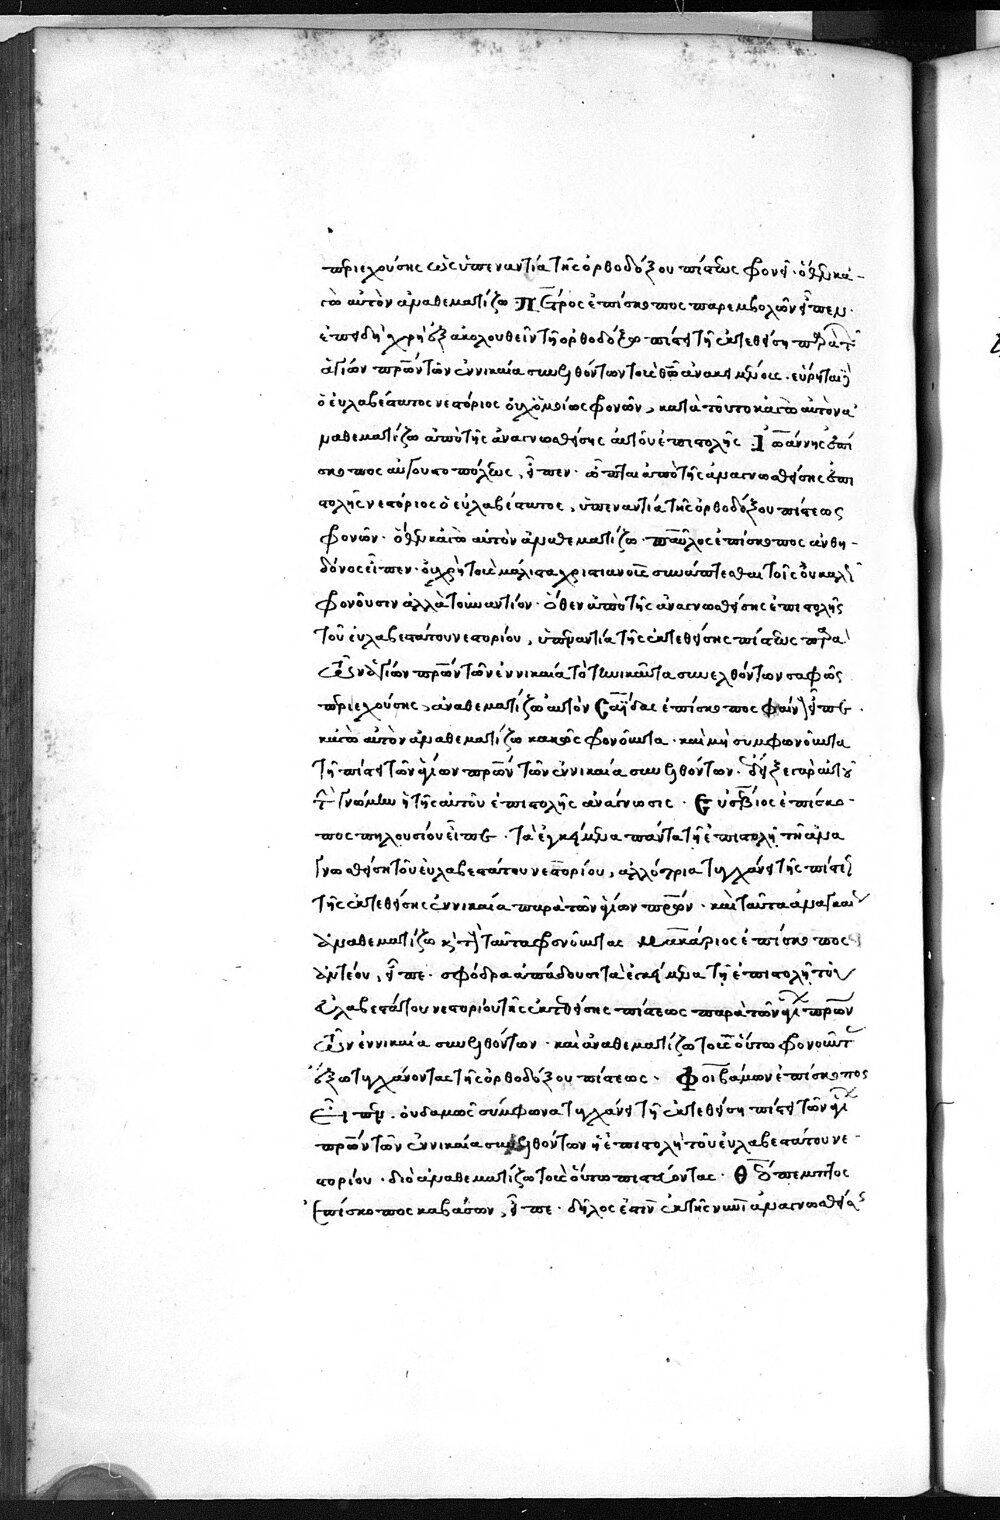 περιεχούσης ὡς ὑπεναντία τῆς ὀρθοδόξου πίστεως φρονεῖ· ὅθεν κἀ-
γὼ αὐτὸν ἀναθεματίζω Πέτρος ἐπίσκοπος παρεμβολῶν εἶπεν·
ἐπειδὴ χρὴ ἐξακολουθεῖν τῇ ὀρθοδόξῳ πίστει τῇ ἐκτεθείσῃ παρὰ τῶν
ἁγίων πρων τῶν ἐν νικαία συνελθόντων τοῖς ἀνακειμένοις· εὕρηται
ὁ εὐλαβέστατος νεστόριος οὐχ ὁμοίως φρονῶν, κατὰ τοῦτο κἀγὼ αὐτὸν ἀνα
θεματίζω ἀπὸ τῆς ἀναγνωσθείσης αὐτοῦ ἐπιστολῆς Ἰωάννης ἐπί
σκοπος αὐγουστοπόλεως, εἶπεν· ὦπται ἀπὸ τῆς ἀναγνωσθείσης ἐπι
στολῆς νεστόριος ὁ εὐλαβέστατος, ὑπεναντία τῆς ὀρθοδόξου πίστεως
φρονῶν· ὅθεν κἀγὼ αὐτὸν ἀναθεματίζω· παῦλος ἐπίσκοπος ἀνθη-
δόνος εἶπεν· οὐ χρὴ τοῖς μάλιστα χριστιανοῖς συνάπτεσθαι τοῖς οὐ καλῶς
φρονοῦσιν ἀλλὰ τοὐναντίον· ὅθεν ἀπὸ τῆς ἀναγνωσθείσης ἐπιστολῆς
τοῦ εὐλαβεστάτου νεστορίου, ὑπεναντία τῆς ἐκτεθείσης πίστεως παρὰ
τῶν ἁγίων πρων τῶν ἐν νικαία τὸ τηνικαῦτα συνελθόντων σαφῶς
περιεχούσης, ἀναθεματίζω αὐτὸν Σαΐδας ἐπίσκοπος φαινοῦς εἶπεν·
κἀγὼ αὐτὸν ἀναθεματίζω κακῶς φρονοῦντα· καὶ μὴ συμφωνοῦντα
τῇ πίστει τῶν ἁγίων πρων τῶν ἐν νικαία συνελθόντων· ἔδειξε γὰρ αὐτοῦ
τὴν γνώμην ἡ τῆς αὐτοῦ ἐπιστολῆς ἀνάγνωσις· Εὐσέβιος ἐπίσκο-
πος πηλουσίου εἶπεν· τὰ ἐγκείμενα πάντα τῇ ἐπιστολῇ τῇ ἀνα
γνωσθείσῃ τοῦ εὐλαβεστάτου νεστορίου, ἀλλότρια τυγχάνει τῆς πίστεως
τῆς ἐκτεθείσης ἐν νικαία παρὰ τῶν ἁγίων πρων· καὶ ταῦτα ἀναγκαίως
ἀναθεματίζω κ(αὶ) τοὺς ταῦτα φρονοῦντας Μακάριος ἐπίσκοπος
ἀντέου, εἶπε· σφόδρα ἀπάδουσι τὰ ἐγκείμενα τῇ ἐπιστολῇ τοῦ
εὐλαβεστάτου νεστορίου τῆς ἐκτεθείσης πίστεως παρὰ τῶν ἁγίων πρων
τῶν ἐν νικαία συνελθόντων· καὶ ἀναθεματίζω τοὺς οὕτω φρονοῦντας
ἔξω τυγχάνοντας τῆς ὀρθοδόξου πίστεως· Φοιβάμων ἐπίσκοπος
εἶπεν· οὐδαμῶς σύμφωνα τυγχάνει τῇ ἐκτεθείσῃ πίστει τῶν ἁγίων
πρων τῶν ἐν νικαία συνελθόντων ἡ ἐπιστολὴ τοῦ εὐλαβεστάτου νε-
στορίου· διὸ ἀναθεματίζω τοὺς οὕτω πιστεύοντας· Θεόπεμπτος
ἐπίσκοπος καβάσων, εἶπε· δῆλός ἐστιν ἐκ τῆς νυνὶ ἀναγνωσθείσης